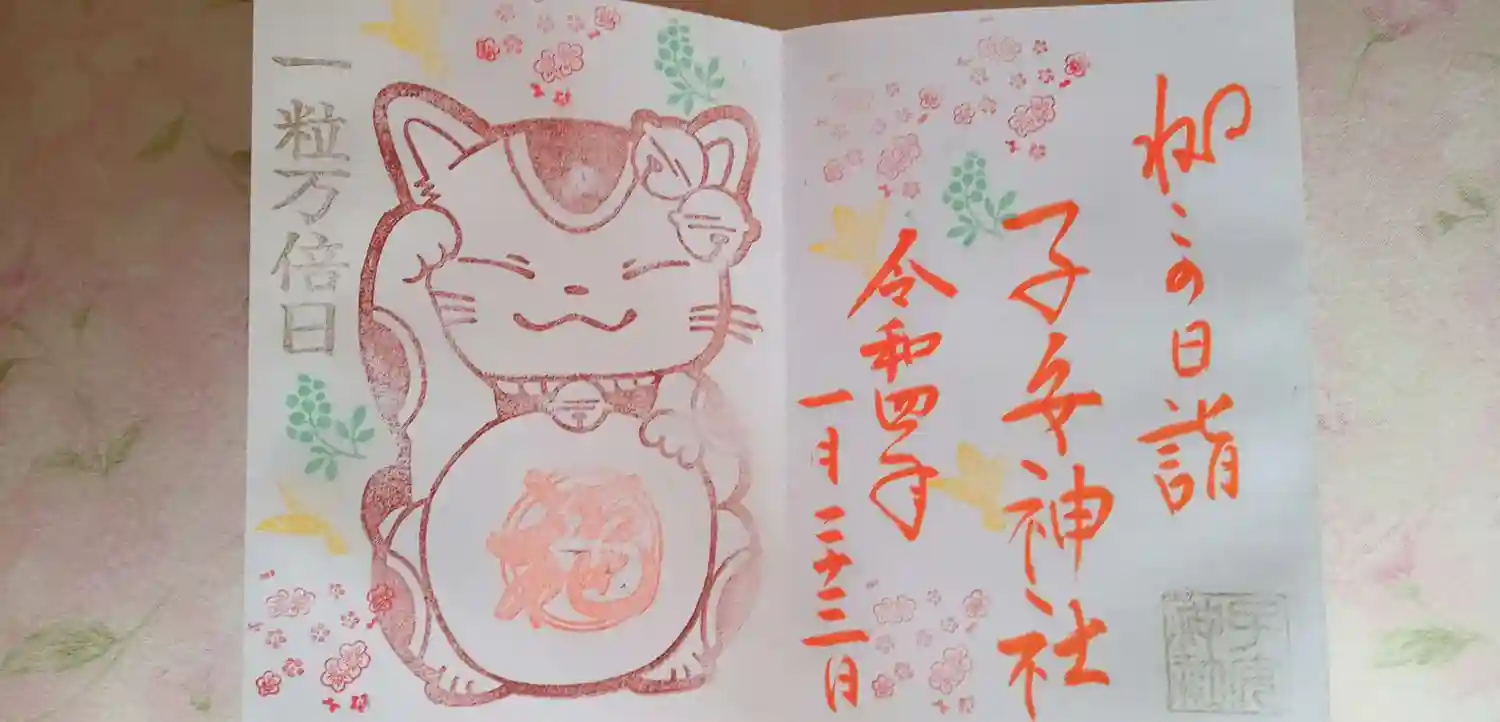 ねこの日詣
子安神社
令和四年
一月二十二日
一粒万倍日
福